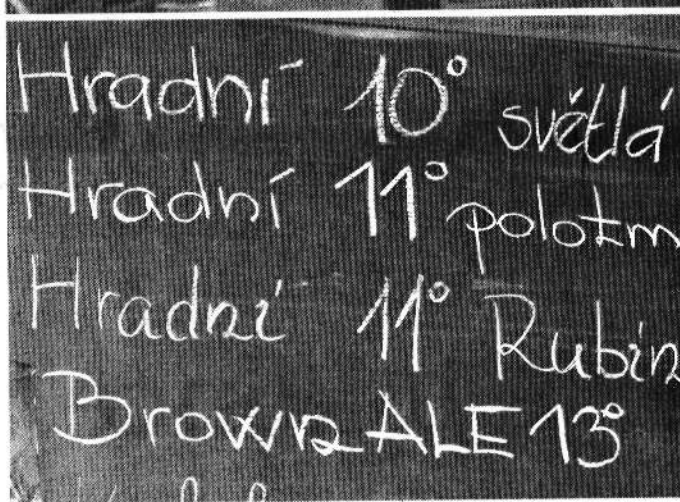 Hradní 10° světlá
Hradní 11° polotm
Hradní 11° Rubín
Brown ALE 13°